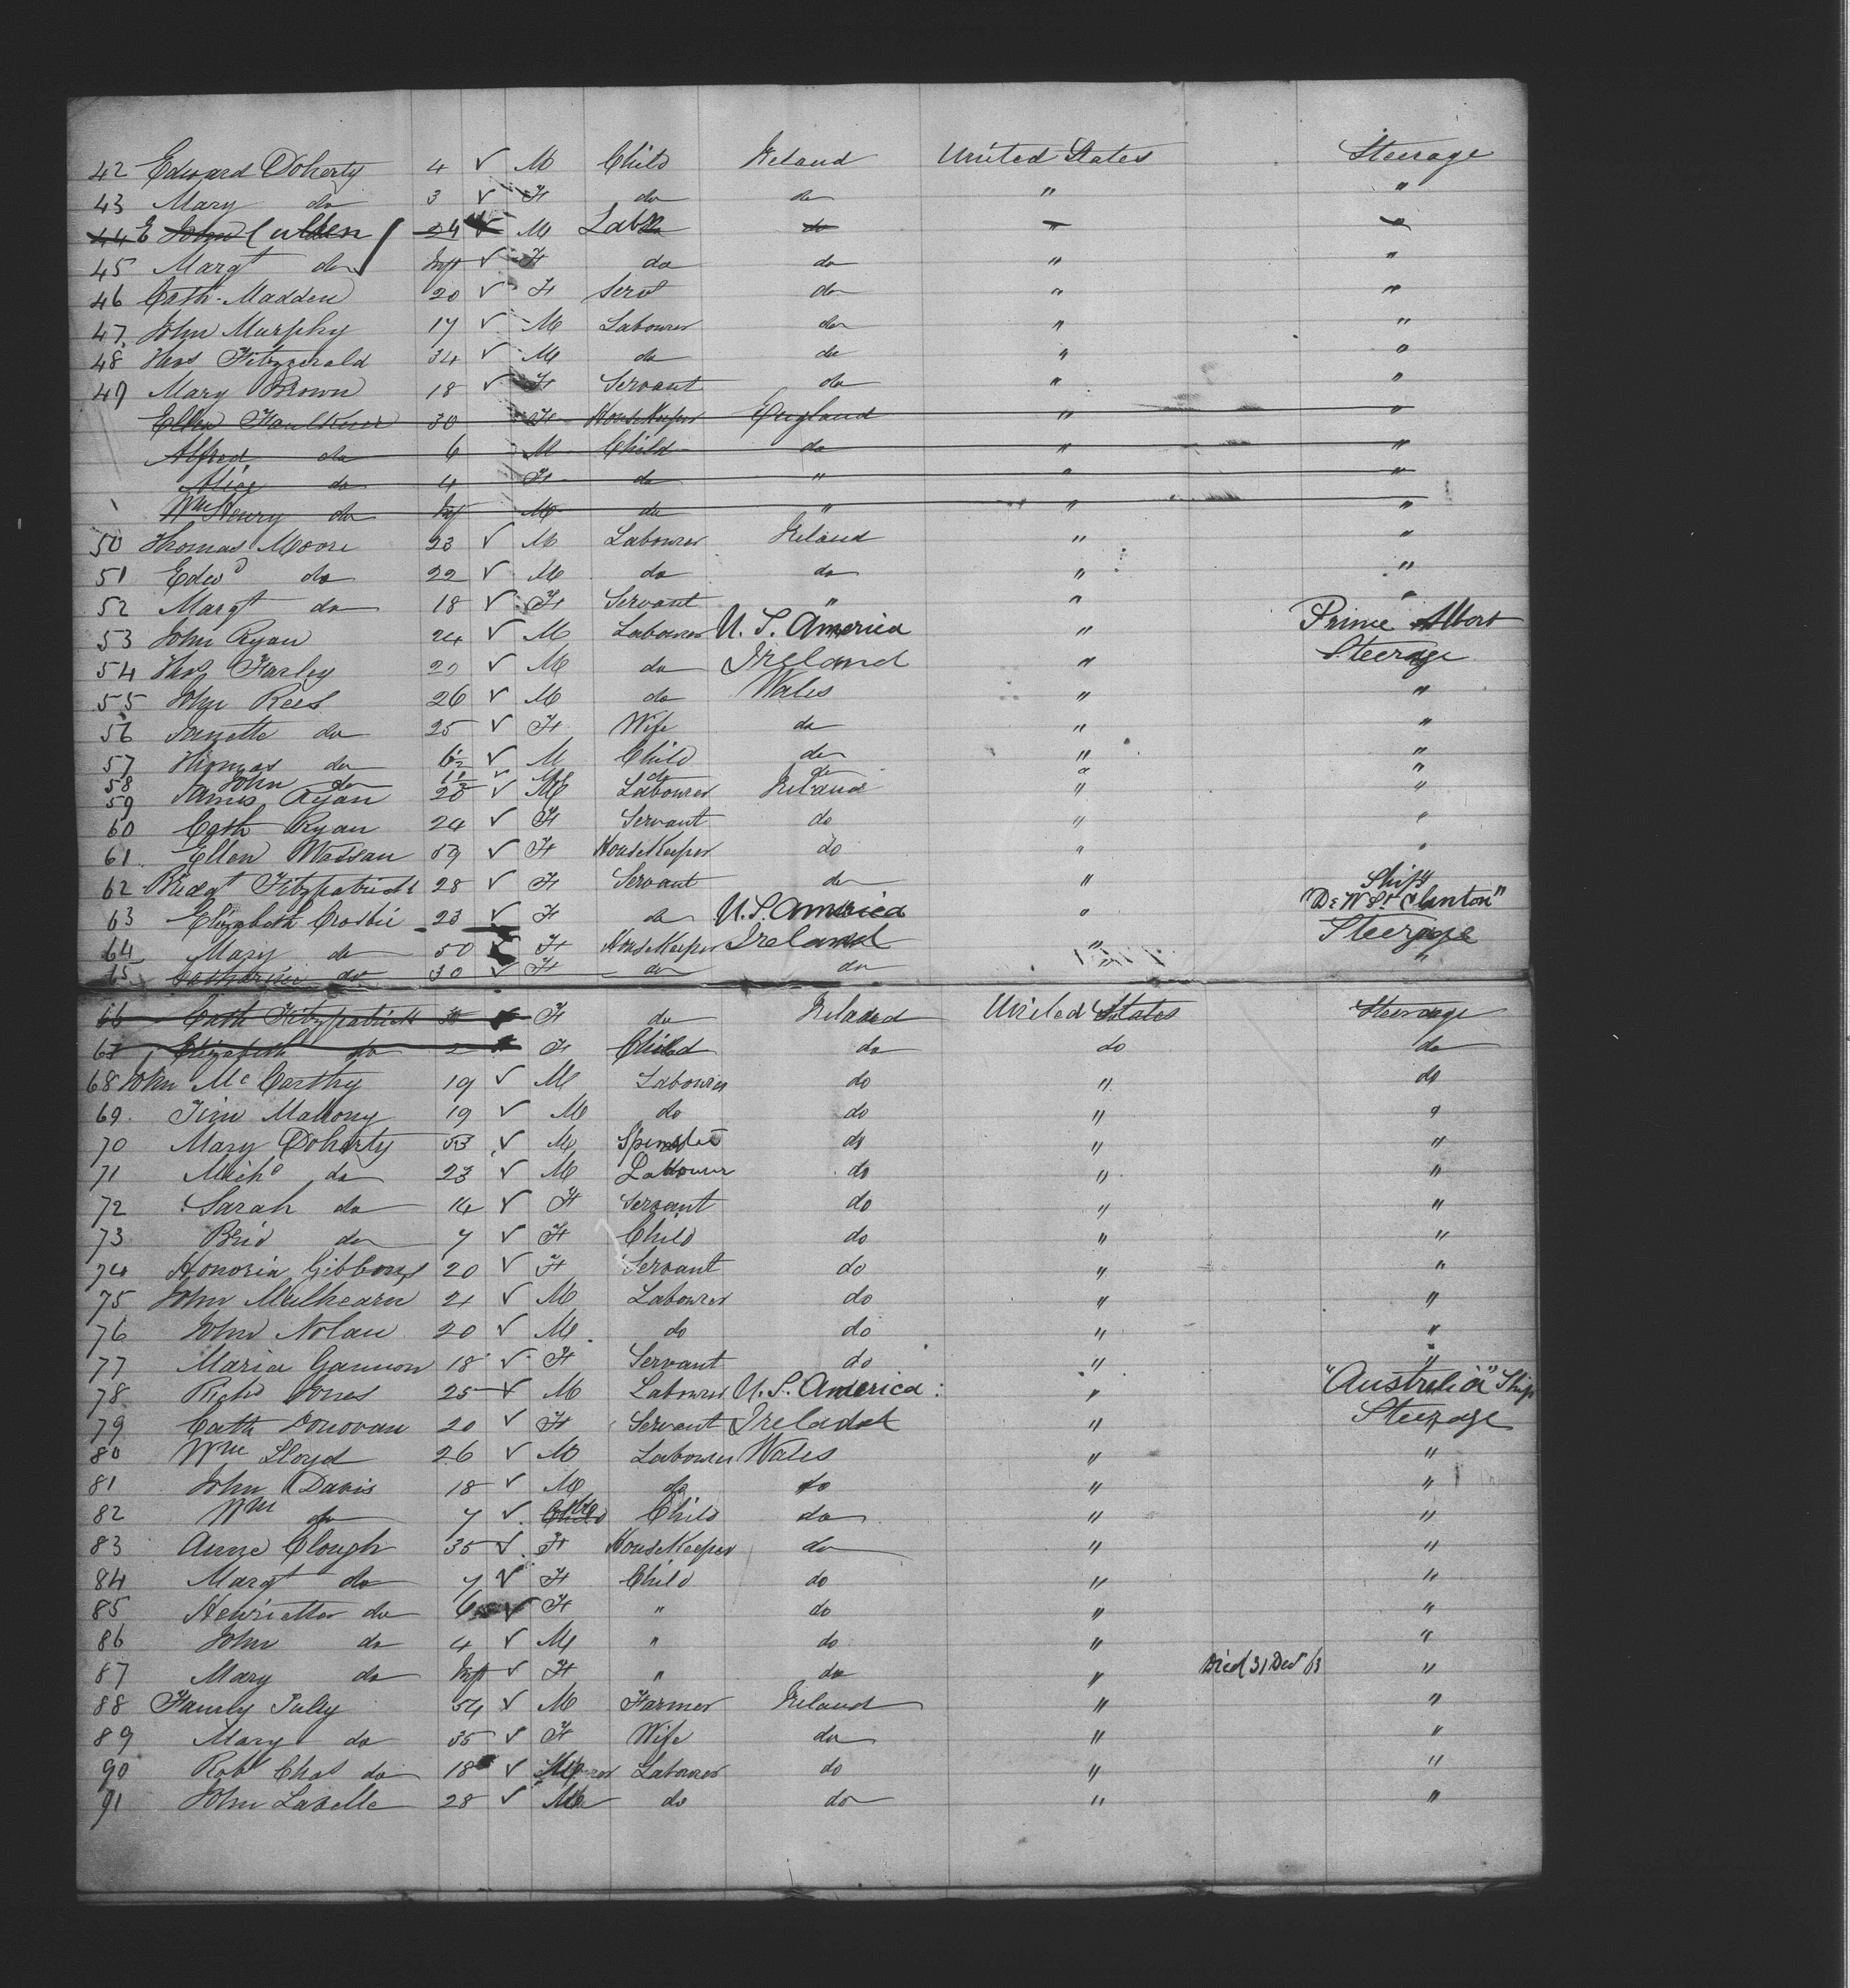 42 Edward Doherty 4 ✓ M Child Ireland United States Steerage
43 Mary do 3 ✓ F do do " "
44 E John Cullen 24 ✓ M Labr do " "
45 Margt do Inft ✓ F do do " "
46 Cath. Madden 20 ✓ F Servt do " "
47 John Murphy 17 ✓ M Labourer do " "
48 Thos Fitzgerald 34 ✓ M do do " "
49 Mary Brown 18 ✓ F Servant do " "
Ellen Faulkner 30 F HouseKeeper England " "
Alfred do 6 M Child do " "
Alice do 4 F do " " "
Wm Henry do Inf M do " " "
50 Thomas Moore 23 ✓ M Labourer Ireland " "
51 Edwd do 22 ✓ M do do " "
52 Margt do 18 ✓ F Servant " " "
53 John Ryan 24 ✓ M Labourer U. S. America " Prince Albert
54 Thos Farley 22 ✓ M do Ireland " Steerage
55 John Rees 26 ✓ M do Wales " "
56 Janette do 25 ✓ F Wife do " "
57 Thomas do ✓ M Child do " "
58 John do 1½ ✓ M do do " "
59 James Ryan 20 ✓ M Labourer Ireland " "
60 Cath Ryan 24 ✓ F Servant do " "
61 Ellen Wassau 59 ✓ F HouseKeeper do " "
62 Bridgt Fitzpatrick 28 ✓ F Servant do " Ship
63 Elizabeth Crosbie 23 ✓ F do U. S. America " "De Wt Clinton"
64 Mary do 50 ✓ F HouseKeeper Ireland " Steerage
65 Catharine do 30 ✓ F do do " "
66 Cath Fitzpatrick 30 ✓ F do Ireland United States Steerage
67 Elizabeth do 2 ✓ F Child do do do
68 John McCarthy 19 ✓ M Labourer do " do
69 Tim Mahony 19 ✓ M do do " "
70 Mary Doherty 53 ✓ M Spinster do " "
71 Michl do 23 ✓ M Labourer do " "
72 Sarah do 14 ✓ F Servant do " "
73 Brid do 7 ✓ F Child do " "
74 Honoria Gibbons 20 ✓ F Servant do " "
75 John Mulhearn 21 ✓ M Labourer do " "
76 John Nolan 20 ✓ M do do " "
77 Maria Gannon 18 ✓ F Servant do " "
78 Richd Jones 25 ✓ M Labourer U. S. America " "Australia" Ship
79 Cath Donovan 20 ✓ F Servant Ireland " Steerage
80 Wm Lloyd 26 ✓ M Labourer Wales " "
81 John Davis 18 ✓ M do do " "
82 Wm do 7 ✓ Child Child do " "
83 Anne Clough 35 ✓ F HouseKeeper do " "
84 Margt do 7 ✓ F Child do " "
85 Henrietta do 6 ✓ F " do " "
86 John do 4 ✓ M " do " "
87 Mary do Inft ✓ F " do " Died 31 Decr 63 "
88 Family Tuley 54 ✓ M Farmer Ireland " "
89 Mary do 35 ✓ F Wife do " "
90 Robt Chas do 18 ✓ M Labourer do " "
91 John Lavelle 28 ✓ M do do " "